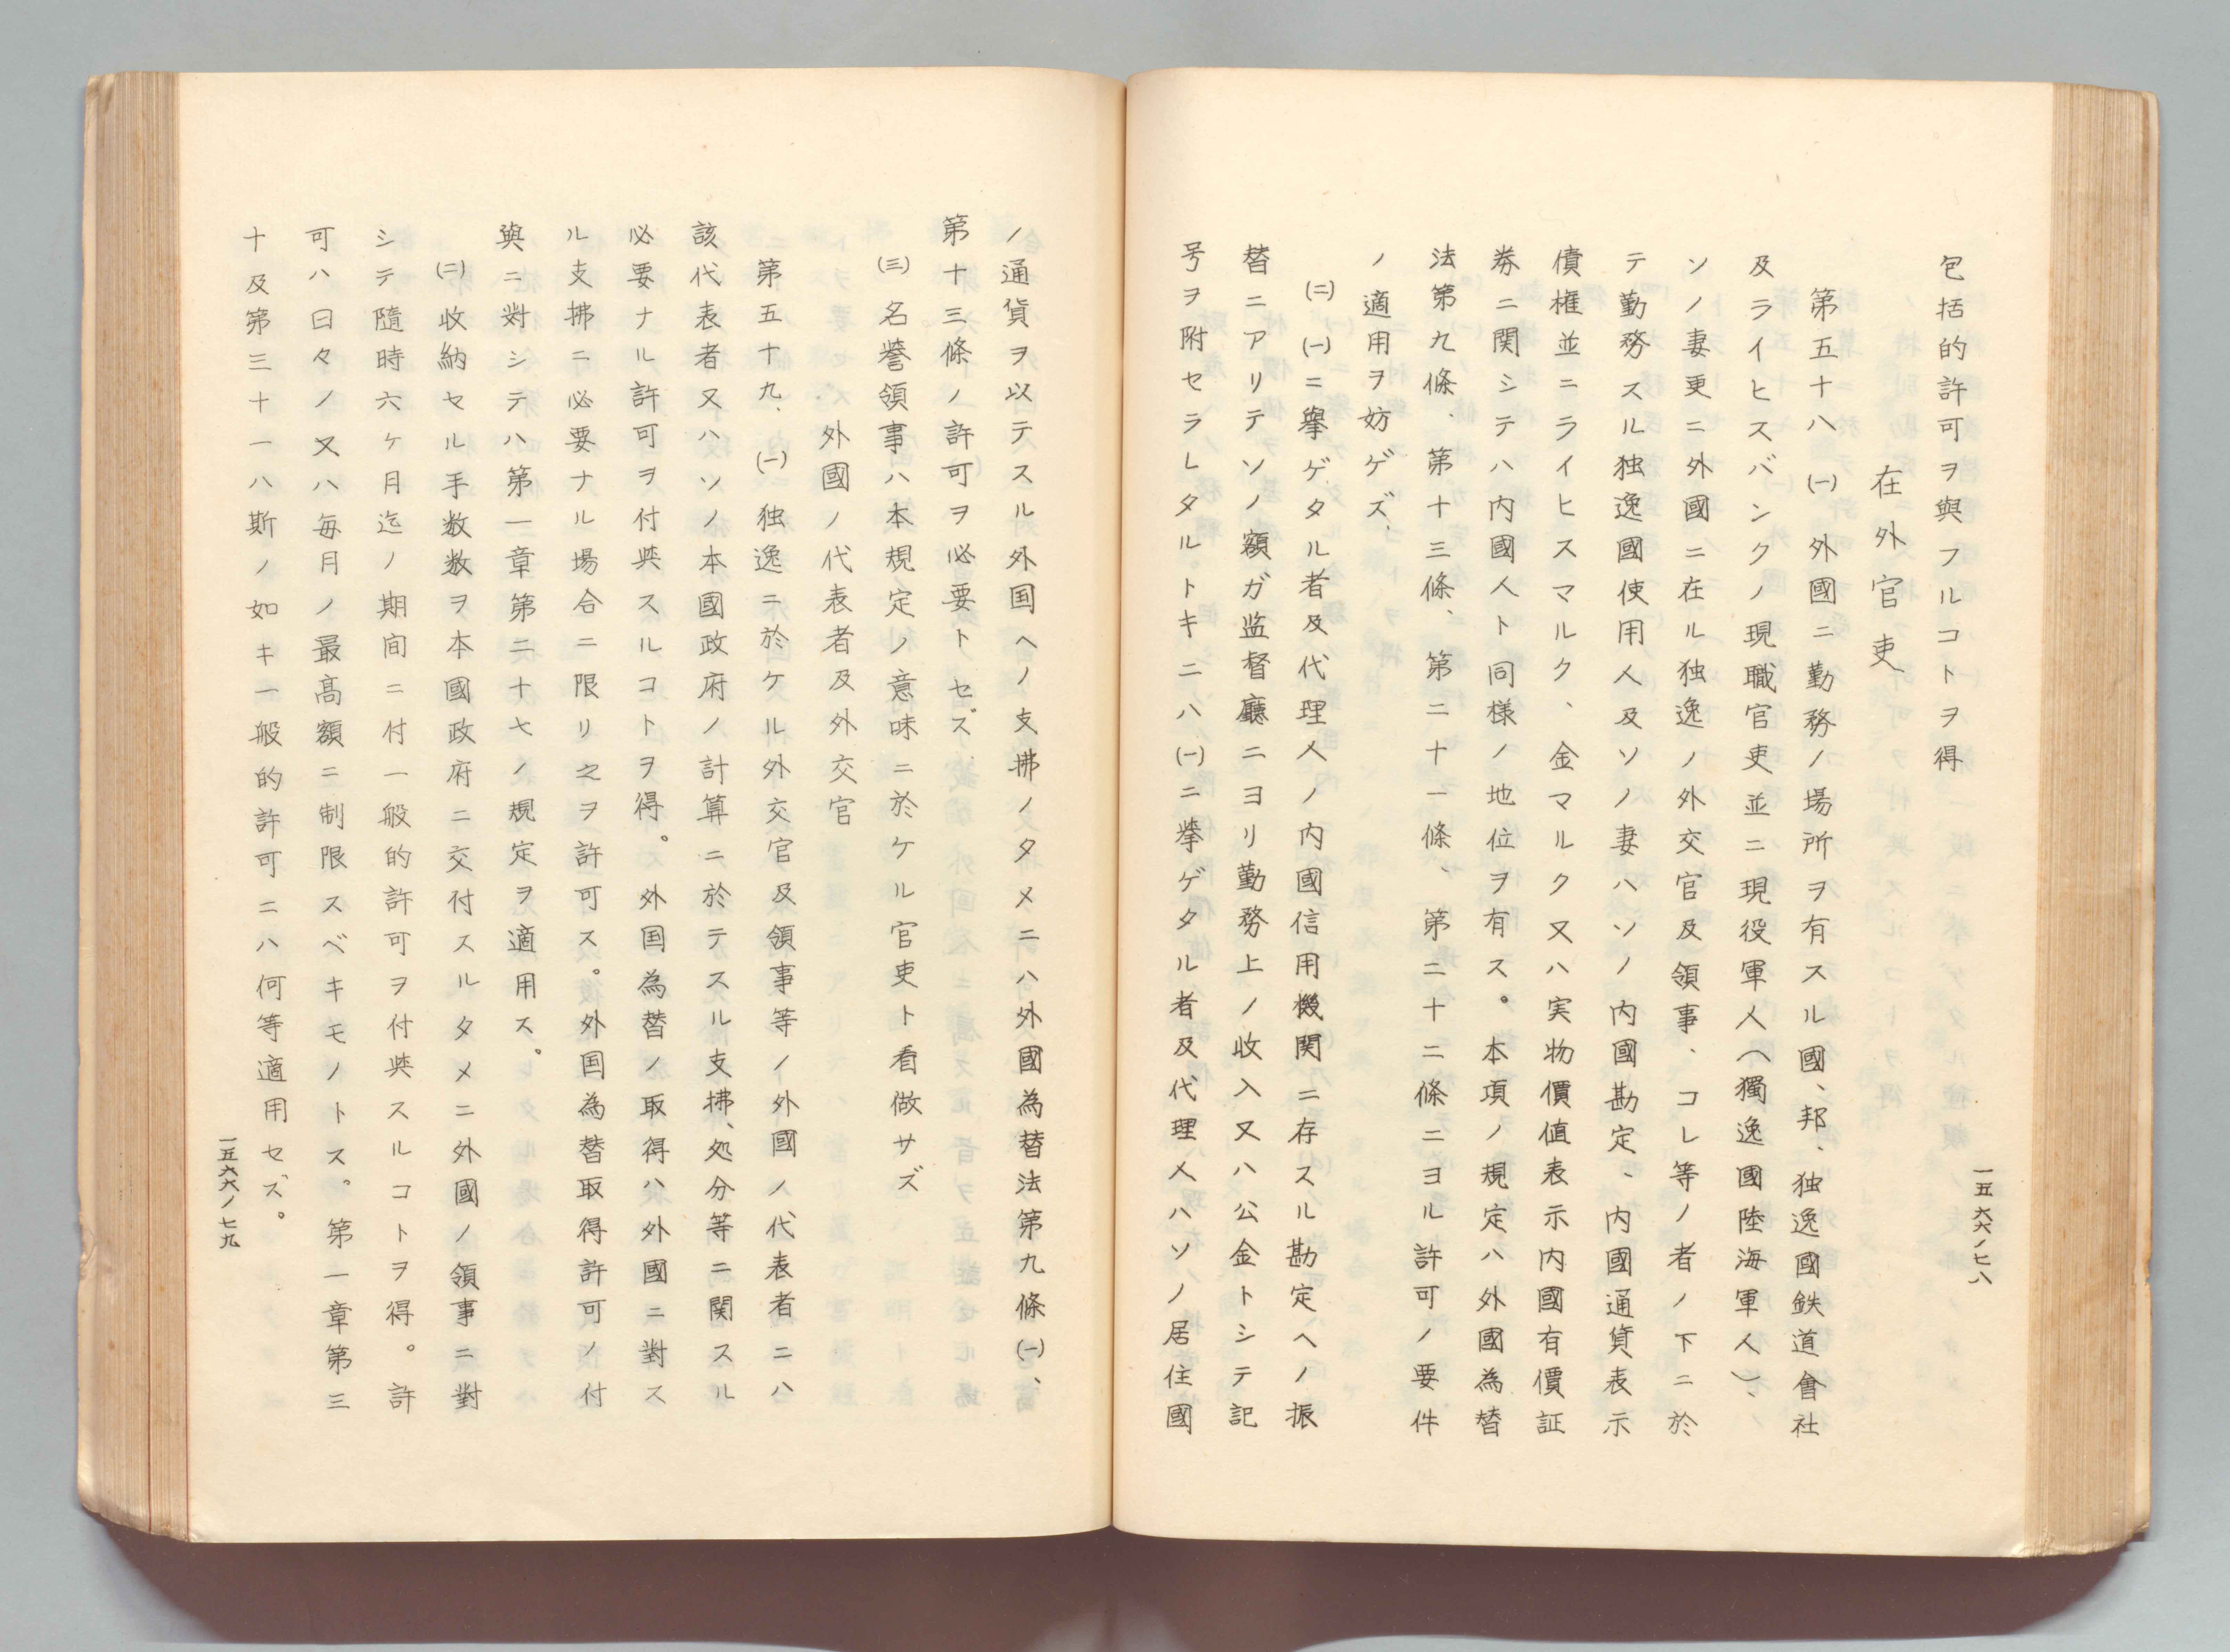 包括的許可ヲ與フルコトヲ得
在外官吏
第五十八 ㈠ 外國ニ勤務ノ場所ヲ有スル國、邦、独逸國鉄道會社
及ライヒスバンクノ現職官吏並ニ現役軍人（獨逸國陸海軍人）、
ソノ妻更ニ外國ニ在ル独逸ノ外交官及領事、コレ等ノ者ノ下ニ於
テ勤務スル独逸國使用人及ソノ妻ハソノ内國勘定、内國通貨表示
債権並ニライヒスマルク、金マルク又ハ実物價値表示内國有價証
券ニ関シテハ内國人ト同様ノ地位ヲ有ス。本項ノ規定ハ外國為替
法第九條、第十三條、第二十一條、第二十二條ニヨル許可ノ要件
ノ適用ヲ妨ゲズ、
㈡ ㈠ニ擧ゲタル者及代理人ノ内國信用機関ニ存スル勘定ヘノ振
替ニアリテソノ額ガ监督廳ニヨリ勤務上ノ收入又ハ公金トシテ記
号ヲ附セラレタル。トキニハ㈠ニ挙ゲタル者及代理人ハソノ居住國
一五六六ノ七八
ノ通貨ヲ以テスル外国ヘノ支拂ノタメニハ外國為替法第九條㈠、
第十三條ノ許可ヲ必要トセズ、
㈢ 名誉領事ハ本規定ノ意味ニ於ケル官吏ト看做サズ
外國ノ代表者及外交官
第五十九、㈠ 独逸ニ於ケル外交官及領事等ノ外國ノ代表者ニハ
該代表者又ハソノ本國政府ノ計算ニ於テスル支拂、処分等ニ関スル
必要ナル許可ヲ付與スルコトヲ得。外国為替ノ取得ハ外國ニ對ス
ル支拂ニ必要ナル場合ニ限リ之ヲ許可ス。外国為替取得許可ノ付
與ニ對シテハ第一章第二十七ノ規定ヲ適用ス。
㈡ 收納セル手数数ヲ本國政府ニ交付スルタメニ外國ノ領事ニ對
シテ隨時六ヶ月迄ノ期间ニ付一般的許可ヲ付與スルコトヲ得。許
可ハ日々ノ又ハ每月ノ最高額ニ制限スベキモノトス。第一章第三
十及第三十一ハ斯ノ如キ一般的許可ニハ何等適用セズ。
一五六六ノ七九